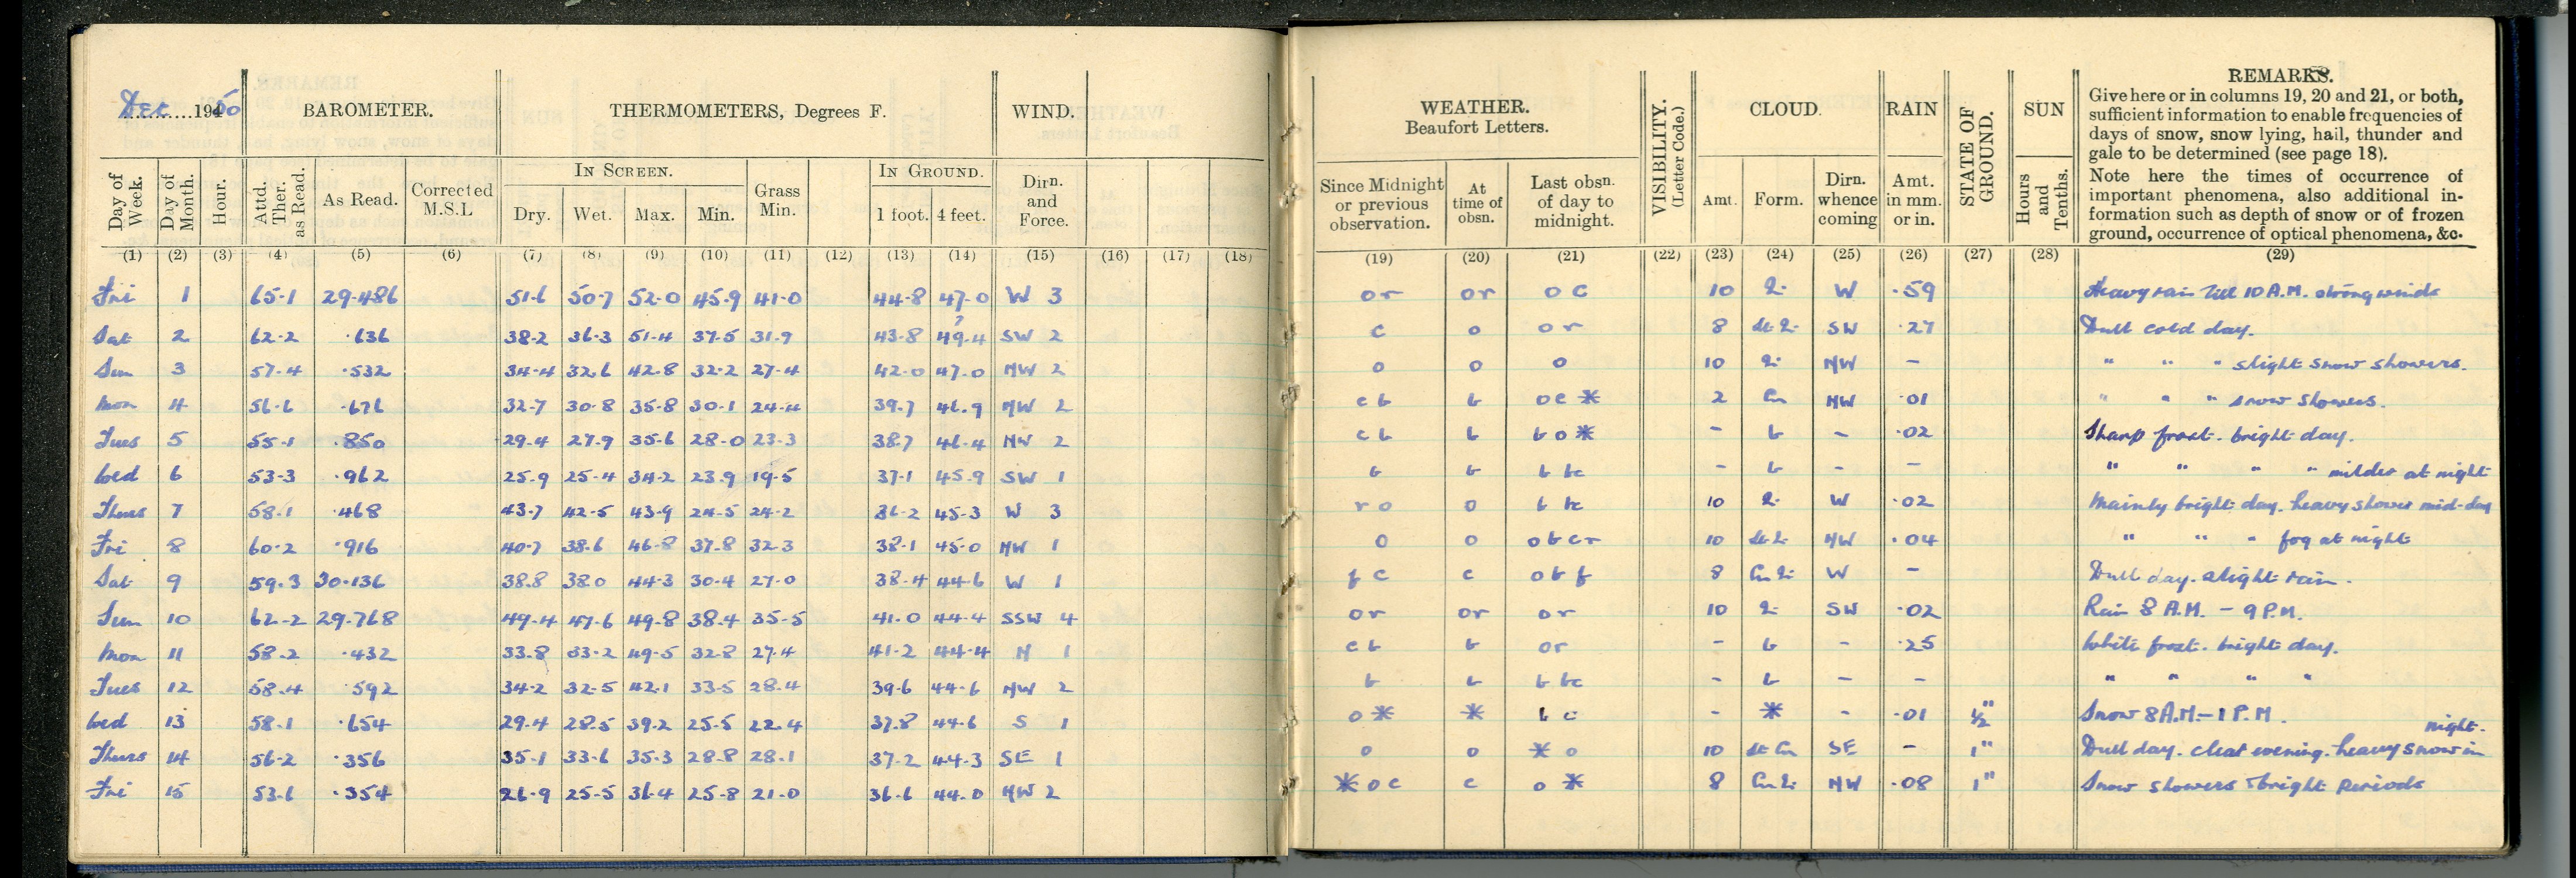 Dec. 1950 BAROMETER. THERMOMETERS, Degrees F. WIND.
Day of Week. Day of Month. Hour. Attd. Ther. as Read. As Read. Corrected M.S.L IN SCREEN. Dry. Wet. Max. Min. Grass Min. IN GROUND. 1 foot. 4 feet. Dirn. and Force.
(1) (2) (3) (4) (5) (6) (7) (8) (9) (10) (11) (12) (13) (14) (15) (16) (17) (18)
Fri 1 65.1 29.486 51.6 50.7 52.0 45.9 41.0 44.8 47.0 W 3
Sat 2 62.2 .636 38.2 36.3 51.4 37.5 31.9 43.8 49.4 ? SW 2
Sun 3 57.4 .532 34.4 32.6 42.8 32.2 27.4 42.0 47.0 NW 2
Mon 4 56.6 .676 32.7 30.8 35.8 30.1 24.4 39.7 46.9 NW 2
Tues 5 55.1 .850 29.4 27.9 35.6 28.0 23.3 38.7 46.4 NW 2
Wed 6 53.3 .962 25.9 25.4 34.2 23.9 19.5 37.1 45.9 SW 1
Thurs 7 58.1 .468 43.7 42.5 43.9 24.5 24.2 36.2 45.3 W 3
Fri 8 60.2 .916 40.7 38.6 46.8 37.8 32.3 38.1 45.0 NW 1
Sat 9 59.3 30.136 38.8 38.0 44.3 30.4 27.0 38.4 44.6 W 1
Sun 10 62.2 29.768 49.4 47.6 49.8 38.4 35.5 41.0 44.4 SSW 4
Mon 11 58.2 .432 33.8 33.2 49.5 32.8 27.4 41.2 44.4 N 1
Tues 12 58.4 .592 34.2 32.5 42.1 33.5 28.4 39.6 44.6 NW 2
Wed 13 58.1 .654 29.4 28.5 39.2 25.5 22.4 37.8 44.6 S 1
Thurs 14 56.2 .356 35.1 33.6 35.3 28.8 28.1 37.2 44.3 SE 1
Fri 15 53.6 .354 26.9 25.5 36.4 25.8 21.0 36.6 44.0 NW 2
WEATHER. Beaufort Letters. VISIBILITY. (Letter Code.) CLOUD. RAIN STATE OF GROUND. SUN REMARKS.
Since Midnight or previous observation. At time of obsn. Last obsn. of day to midnight. Amt. Form. Dirn. whence coming Amt. in mm. or in. Hours and Tenths.
Give here or in columns 19, 20 and 21, or both,
sufficient information to enable frequencies of
days of snow, snow lying, hail, thunder and
gale to be determined (see page 18).
Note here the times of occurrence of
important phenomena, also additional in-
formation such as depth of snow or of frozen
ground, occurrence of optical phenomena, &c.
(19) (20) (21) (22) (23) (24) (25) (26) (27) (28) (29)
or or oc 10 W .59 Heavy rain till 10 A.M. strong winds
c o or 8 SW .27 Dull cold day.
o o o 10 NW - " " " slight snow showers.
cb b oc* 2 Cu NW .01 " " " snow showers.
cb b bo* - b - .02 Sharp frost. bright day.
b b b bc - b - - " " " " milder at night
ro o b bc 10 W .02 Mainly bright day. heavy shower mid-day
o o obcr 10 NW .04 " " " fog at night
fc c obf 8 W - Dull day. slight rain.
or or or 10 SW .02 Rain 8 A.M. - 9 P.M.
cb b or - b - .25 White frost. bright day.
b b b bc - b - - " " " "
o* * bc - * - .01 ½" Snow 8 A.M. - 1 P.M.
o o *o 10 St Cu SE - 1" Dull day. clear evening. heavy snow in night.
*oc c o* 8 NW .08 1" Snow showers & bright periods